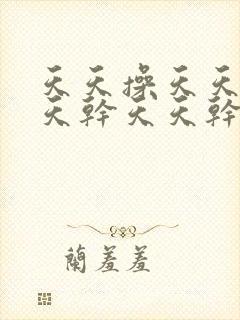 天天操天天
天幹天天幹
蘭羞羞